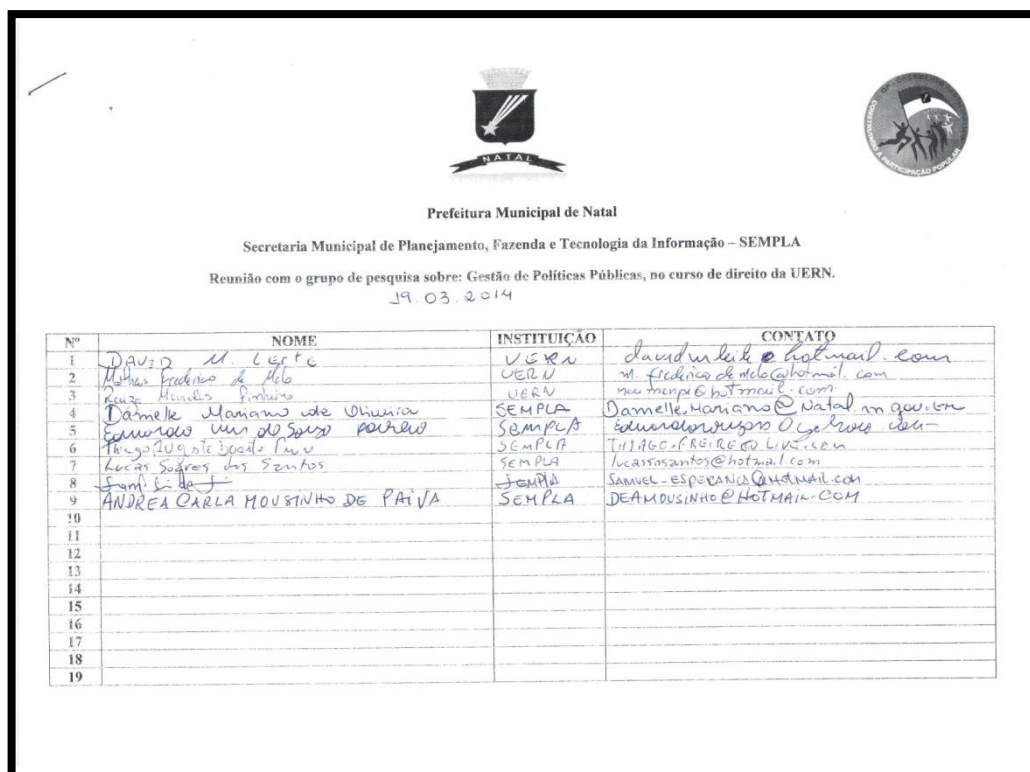 NATAL
CONSTRUINDO A PARTICIPAÇÃO POPULAR
Prefeitura Municipal de Natal
Secretaria Municipal de Planejamento, Fazenda e Tecnologia da Informação – SEMPLA
Reunião com o grupo de pesquisa sobre: Gestão de Políticas Públicas, no curso de direito da UERN.
19.03.2014
Nº NOME INSTITUIÇÃO CONTATO
1 DAVID M. LEITE UERN davidmleite@hotmail.com
2 Matheus Frederico de Melo UERN m.fredericodemelo@hotmail.com
3 Mendes Pinheiro UERN
4 Danielle Mariano de Oliveira SEMPLA Danielle.Mariano@Natal.rn.gov.br
5 Eduardo de Souza SEMPLA
6 Thiago Duarte SEMPLA THIAGO.FREIRE@LIVE.com
7 Lucas Soares dos Santos SEMPLA lucasssantos@hotmail.com
8 SEMPLA SAMUEL-ESPERANCA@HOTMAIL.COM
9 ANDREA CARLA MOUSINHO DE PAIVA SEMPLA DEAMOUSINHO@HOTMAIL.COM
10
11
12
13
14
15
16
17
18
19